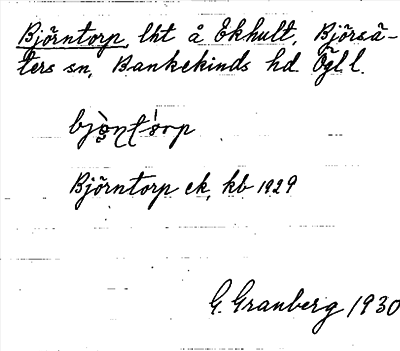 Björntorp, lht å Ekhult, Björsä-
ters sn, Bankekinds hd. Ögl. l.
Björntorp ek, kb 1929
G. Granberg 1930